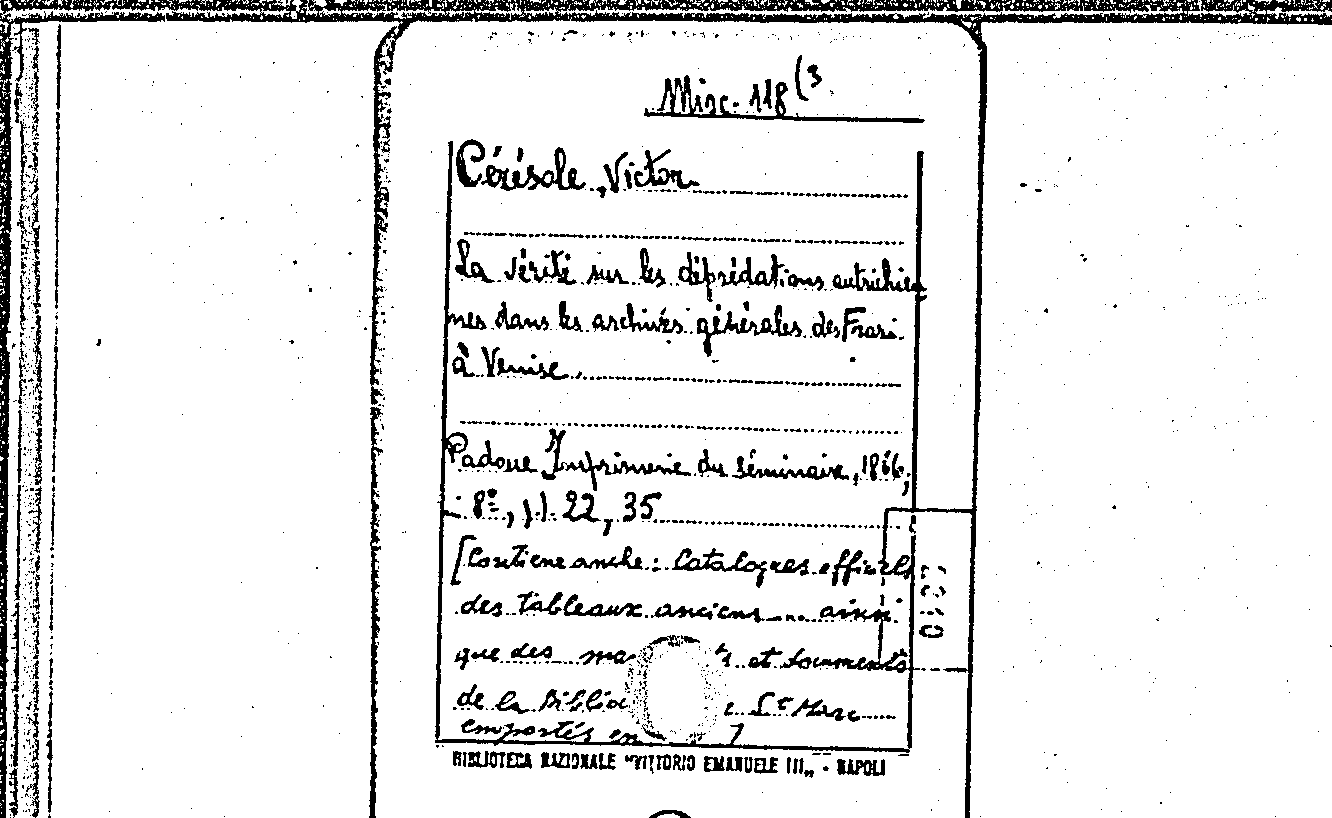 Misc. 118 (3
Cérésole, Victor
La vérité sur les déprédations autrichien
nes dans les archives générales des Frari
à Venise.
Padoue Imprimerie du séminaire, 1866,
8º, 22, 35
[Contiene anche: Catalogues officiels
des tableaux anciens .... ainsi
que des et documents
de la St Marc
emportés en ]
BIBLIOTECA NAZIONALE "VITTORIO EMANUELE III„ - NAPOLI